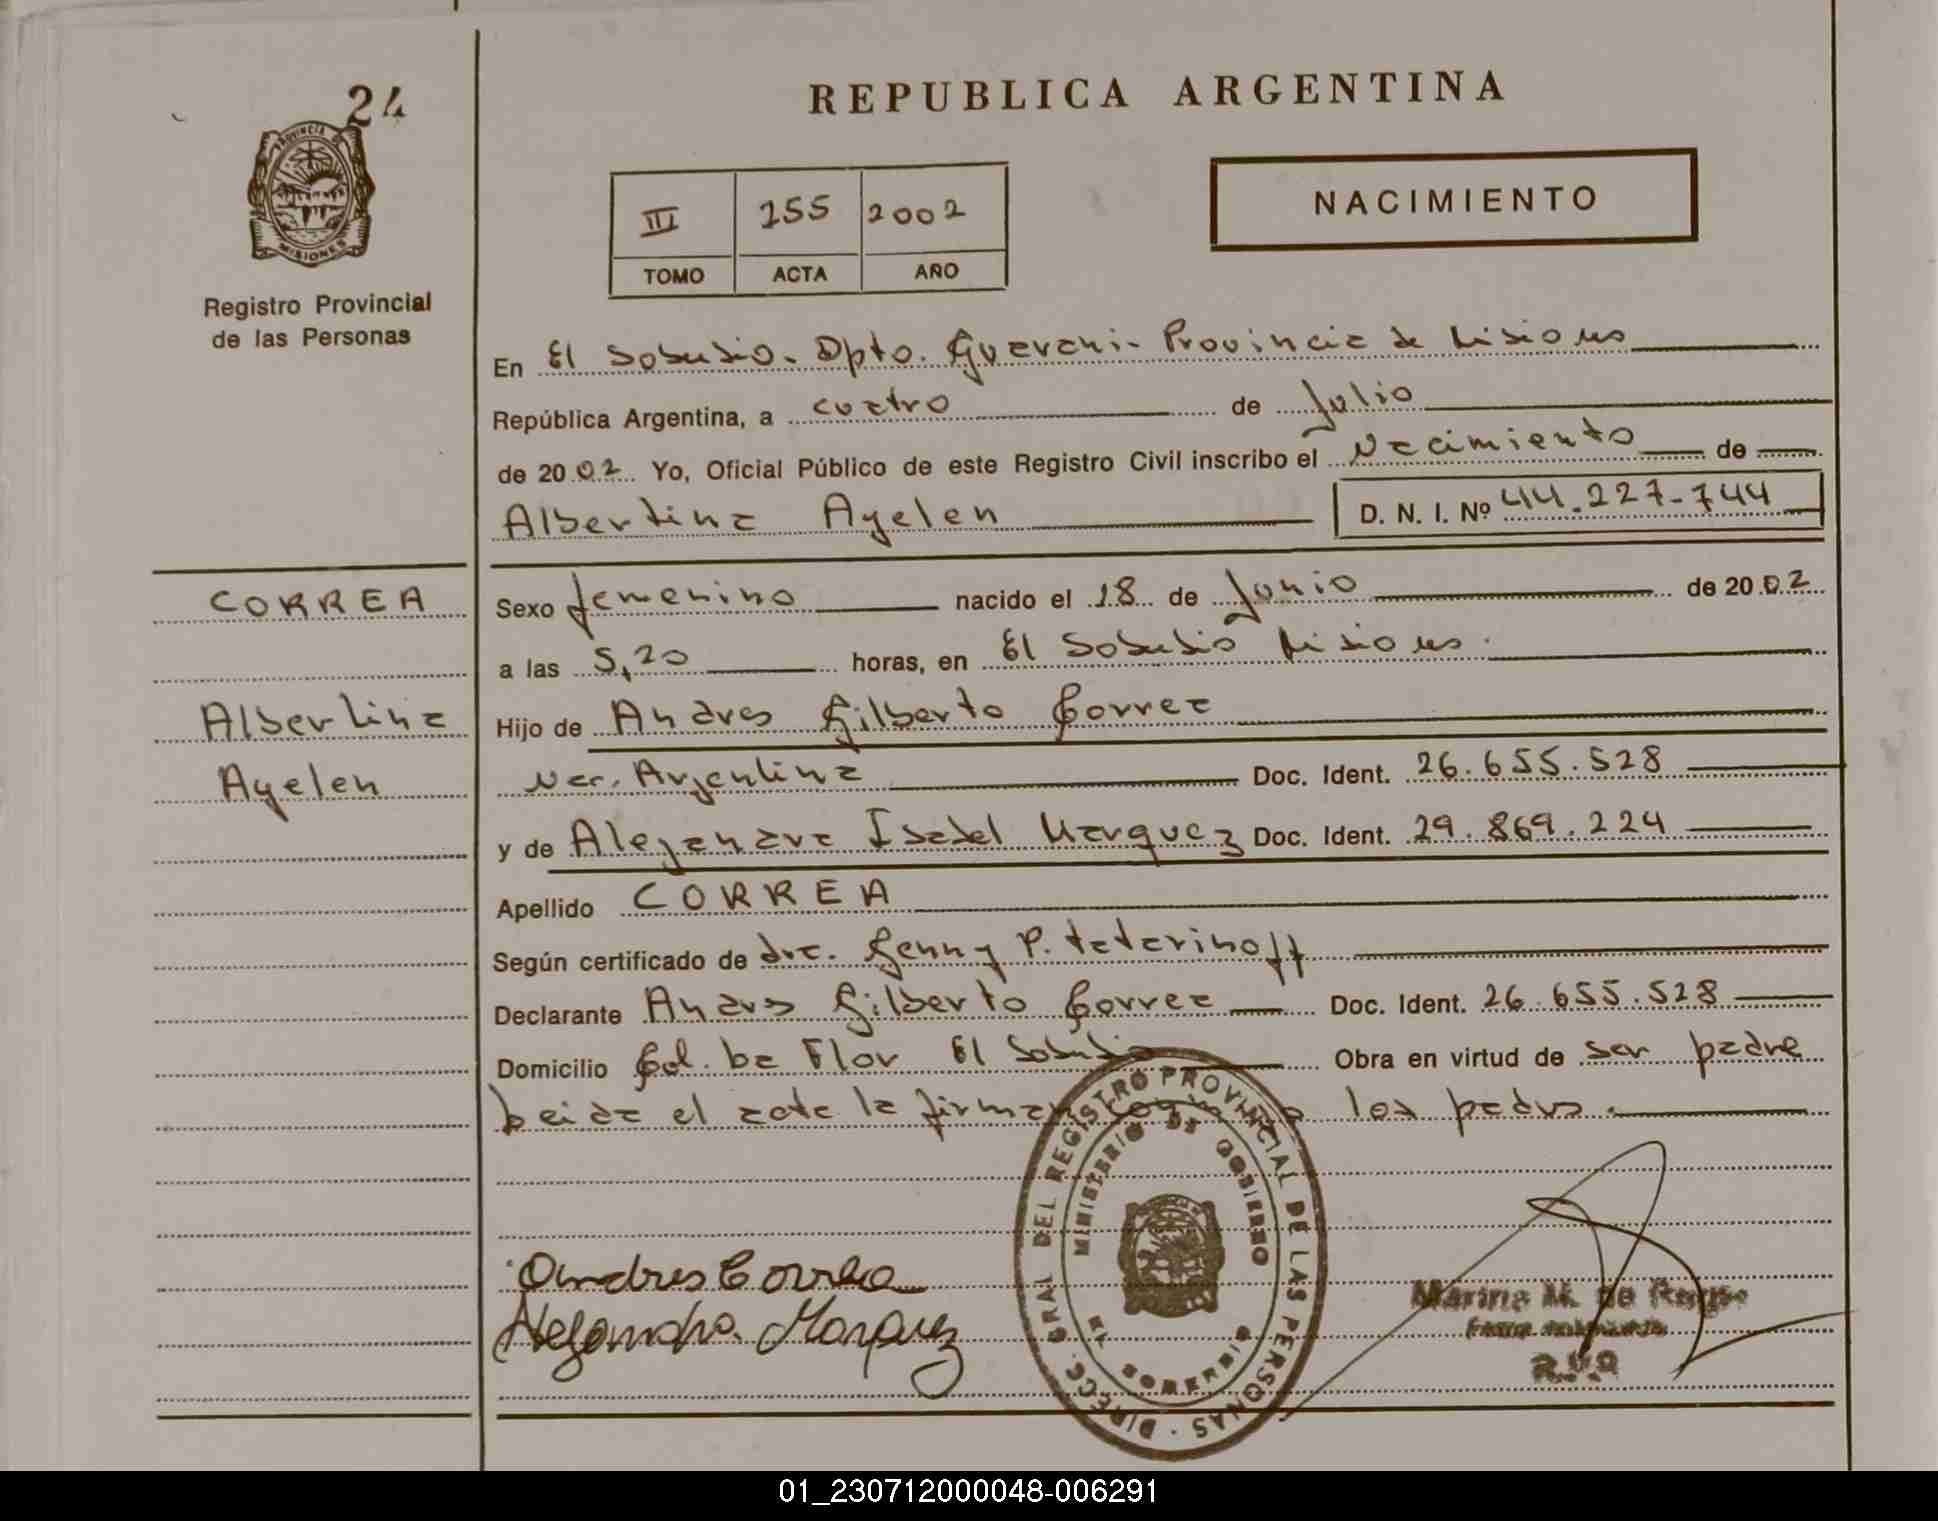 24
PROVINCIA DE
MISIONES
Registro Provincial
de las Personas
REPUBLICA ARGENTINA
III 255 2002
TOMO ACTA AÑO
NACIMIENTO
En El Soberbio. Dpto. Guarani. Provincia de Misiones
República Argentina, a cuatro de Julio
de 2002 Yo, Oficial Público de este Registro Civil inscribo el Nacimiento de
Albertina Ayelen D. N. I. Nº 44.227.744
CORREA
Albertina
Ayelen
Sexo femenino nacido el 18 de Junio de 2002
a las 5,20 horas, en El Soberbio Misiones.
Hijo de Andres Gilberto Correa
Nac. Argentina Doc. Ident. 26.655.528
y de Alejandra Isabel Marquez Doc. Ident. 29.869.224
Apellido CORREA
Según certificado de dra. Genny P. Teterinoff
Declarante Andres Gilberto Correa Doc. Ident. 26.655.528
Domicilio Col. La Flor El Soberbio Obra en virtud de ser padre
Leida el acta la firman los padres.
DIRECC. GRAL DEL REGISTRO PROVINCIAL DE LAS PERSONAS
MINISTERIO DE GOBIERNO
MISIONES
Andres Correa
Alejandra Marquez
Marina M. de
01_230712000048-006291